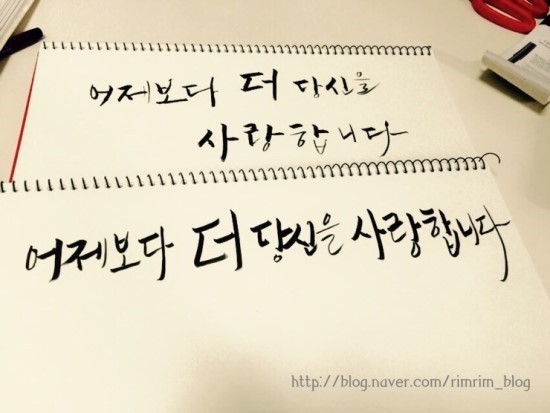 어제보다 더 당신을
사랑합니다
어제보다 더 당신을 사랑합니다
http://blog.naver.com/rimrim_blog